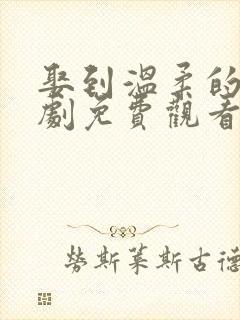 娶到溫柔的
劇免費觀看
勞斯萊斯古德